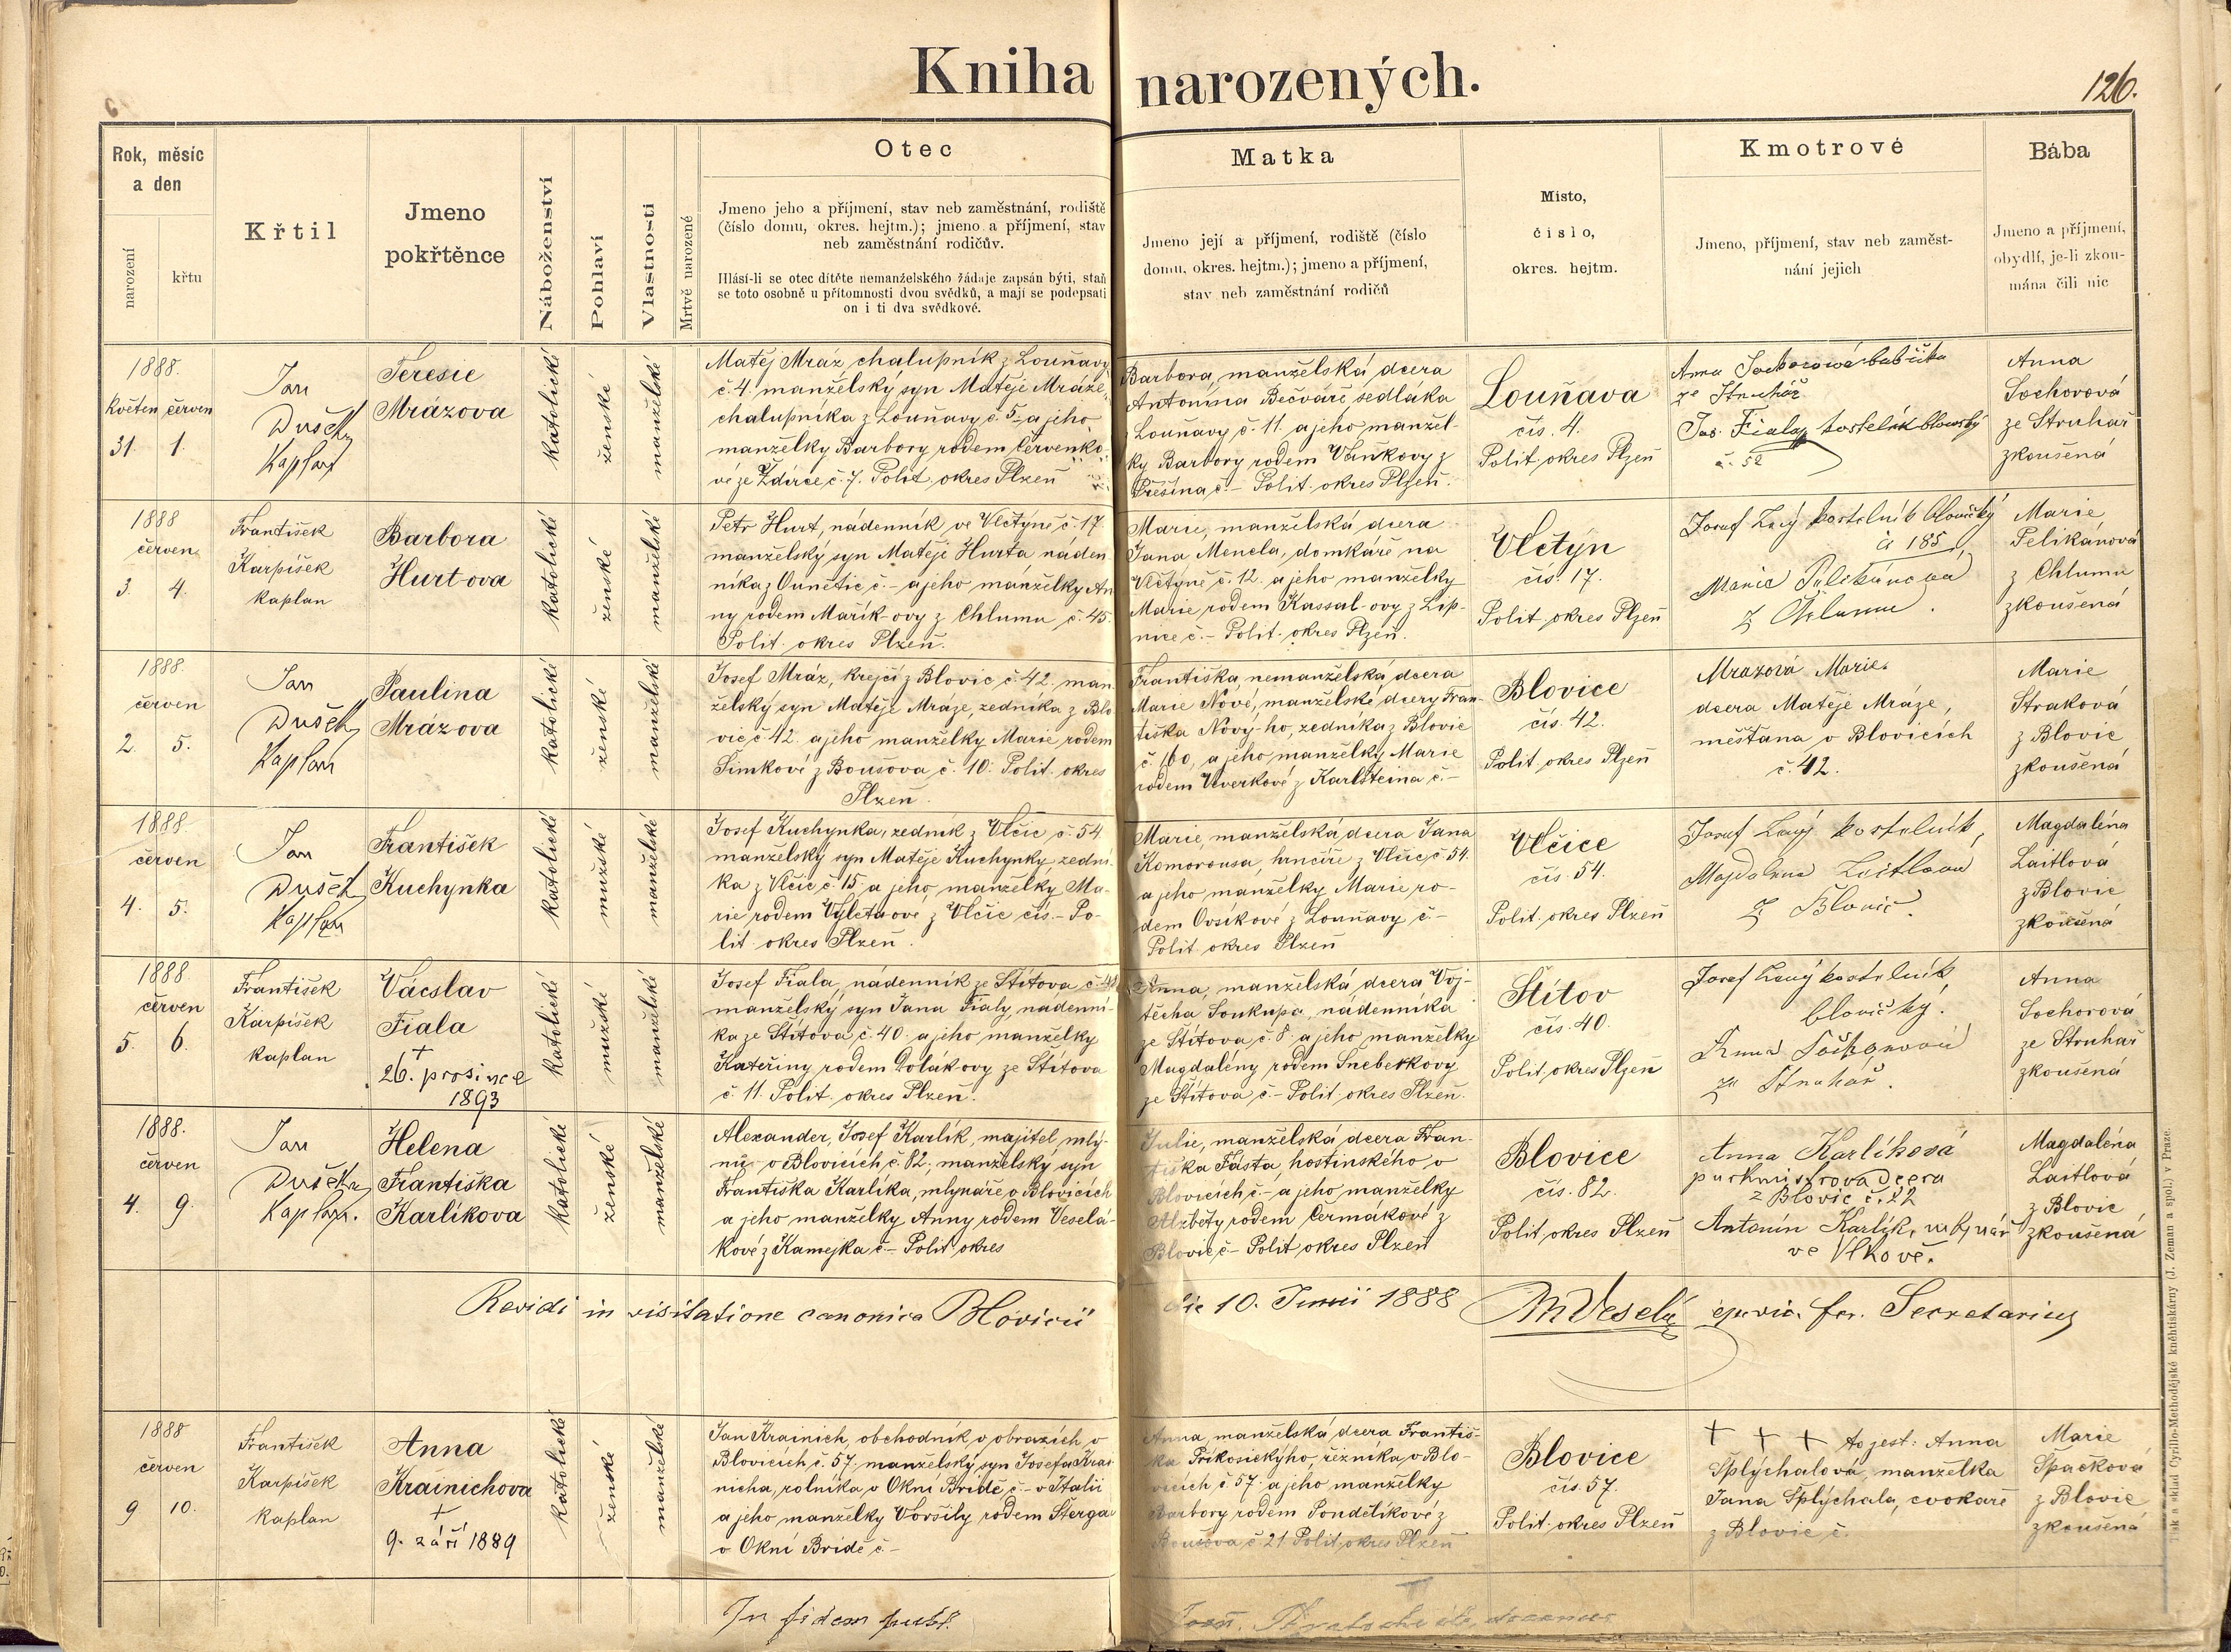 Kniha narozených.
126.
Rok, měsíc
a den
narození
křtu
Křtil
Jmeno
pokřtěnce
Náboženství
Pohlaví
Vlastnosti
Mrtvě narozené
Otec
Jmeno jeho a příjmení, stav neb zaměstnání, rodiště
(číslo domu, okres. hejtm.); jmeno a příjmení, stav
neb zaměstnání rodičův.
Hlásí-li se otec dítěte nemanželského žádaje zapsán býti, staň
se toto osobně u přítomnosti dvou svědků, a mají se podepsati
on i ti dva svědkové.
Matka
Jmeno její a příjmení, rodiště (číslo
domu, okres. hejtm.); jmeno a příjmení,
stav neb zaměstnání rodičů
Místo,
číslo,
okres. hejtm.
Kmotrové
Jmeno, příjmení, stav neb zaměst-
nání jejich
Bába
Jmeno a příjmení,
obydlí, je-li zkou-
mána čili nic
1888.
Květen červen
31. 1.
Jan
Dušek
Kaplan
Teresie
Mrázova
katolické
ženské
manželské
Matěj Mráz, chalupník z Louňavy
č. 4. manželský syn Matěje Mráze,
chalupníka z Louňavy č. 5. a jeho
manželky Barbory rodem Červenko-
vé ze Ždírce č. 7. Polit. okres Plzeň
Barbora, manželská dcera
Antonína Bečváře sedláka
z Louňavy č. 11. a jeho manžel-
ky Barbory rodem Vaňkovy z
Přešina č.- Polit. okres Plzeň.
Louňava
čís. 4.
Polit. okres Plzeň
Anna Sochorová babička
ze Struhař
Jos. Fiala kostelník blovický
č. 52
Anna
Sochorová
ze Struhař
zkoušená
1888
červen
3. 4.
František
Karpíšek
kaplan
Barbora
Hurt-ova
katolické
ženské
manželské
Petr Hurt, nádenník ve Vlčtýně č. 17
manželský syn Matěje Hurta náden
níka z Ounětic č.- a jeho manželky An
ny rodem Mařík-ovy z Chlumu č. 45.
Polit. okres Plzeň.
Marie, manželská dcera
Jana Mencla, domkáře na
Vlčtýně č. 12. a jeho manželky
Marie rodem Kassal-ovy z Lip-
nice č.- Polit. okres Plzeň.
Vlčtýn
čís. 17.
Polit. okres Plzeň
Josef Lavý kostelník blovický
čs 185
Marie Pelikánová
z Chlumu.
Marie
Pelikánová
z Chlumu
zkoušená
1888.
červen
2. 5.
Jan
Dušek
Kaplan
Paulina
Mrázova
katolické
ženské
manželské
Josef Mráz, krejčí z Blovic č. 42. man-
želský syn Matěje Mráze, zedníka z Blo
vic č. 42. a jeho manželky Marie rodem
Šimkové z Boušova č. 10. Polit. okres
Plzeň.
Františka, nemanželská dcera
Marie Nové, manželské dcery Fran-
tiška Nový-ho, zedníka z Blovic
č. 160, a jeho manželky Marie
rodem Veverkové z Karlšteina č.-
Blovice
čís. 42.
Polit. okres Plzeň
Mrazová Marie
dcera Matěje Mráze,
měšťana v Blovicích
č. 42.
Marie
Straková
z Blovic
zkoušená
1888.
červen
4. 5.
Jan
Dušek
Kaplan
František
Kuchynka
katolické
mužské
manželské
Josef Kuchynka, zedník z Vlčic č. 54.
manželský syn Matěje Kuchynky, zední-
ka z Vlčic č. 15. a jeho manželky Ma-
rie rodem Výletaové z Vlčic čís.- Po-
lit. okres Plzeň.
Marie, manželská dcera Jana
Komorousa, hrnčíře z Vlčic č. 54.
a jeho manželky Marie ro-
dem Ovsíkové z Louňavy č.-
Polit. okres Plzeň
Vlčice
čís. 54.
Polit. okres Plzeň
Josef Lavý kostelník,
Magdalena Laitlová
z Blovic.
Magdaléna
Laitlová
z Blovic
zkoušená
1888
červen
5. 6.
František
Karpíšek
kaplan
Vácslav
Fiala
+
26. prosince
1893
katolické
mužské
manželské
Josef Fiala, nádenník ze Štítova č. 40
manželský syn Jana Fialy, nádenní-
ka ze Štítova č. 40. a jeho manželky
Kateřiny rodem Polák-ovy ze Štítova
č. 11. Polit. okres Plzeň.
Anna, manželská dcera Voj-
těcha Soukupa, nádenníka
ze Štítova č. 8. a jeho manželky
Magdalény rodem Sneberkovy
ze Štítova č.- Polit. okres Plzeň.
Štítov
čís. 40.
Polit. okres Plzeň
Josef Lavý kostelník
blovický.
Anna Sochorová
ze Struhař.
Anna
Sochorová
ze Struhař
zkoušená
1888.
červen
4. 9.
Jan
Dušek
Kaplan.
Helena
Františka
Karlíkova
katolické
ženské
manželské
Alexander, Josef Karlík, majitel mlý-
nů v Blovicích č. 82, manželský syn
Františka Karlíka, mlynáře v Blovicích
a jeho manželky Anny rodem Veselá-
kové z Kamejka č.- Polit. okres
Julie, manželská dcera Fran-
tiška Fásta, hostinského v
Blovicích č.- a jeho manželky
Alžběty rodem Čermákové z
Blovic č.- Polit. okres Plzeň
Blovice
čís. 82.
Polit. okres Plzeň
Anna Karlíková
purkmistrova dcera
z Blovic č. 82
Antonín Karlík, mlynář
ve Vlkově.
Magdaléna
Laitlová
z Blovic
zkoušená
Revidi in visitatione canonica Blovicii die 10. Junii 1888 Veselý Secretarius
1888
červen
9 10.
František
Karpíšek
kaplan
Anna
Krainichova
+
9. září 1889
katolické
ženské
manželské
Jan Krainich, obchodník v obrazích v
Blovicích č. 57. manželský syn Josefa Krai
nicha, rolníka v Okní Bridě č.- v Italii
a jeho manželky Voršily rodem Sterga
v Okní Bridě č.-
Anna, manželská dcera Františ-
ka Příkosickýho, řezníka v Blo-
vicích č. 57. a jeho manželky
Barbory rodem Pondělíkové z
Boušova č. 21 Polit. okres Plzeň
Blovice
čís. 57.
Polit. okres Plzeň
+ + + to jest: Anna
Splýchalová, manželka
Jana Splýchala, cvokaře
z Blovic č.
Marie
Špačková
z Blovic
zkoušená
In fidem publ.
Tisk a sklad Cyrillo-Methodějské kněhtiskárny (J. Zeman a spol.) v Praze.